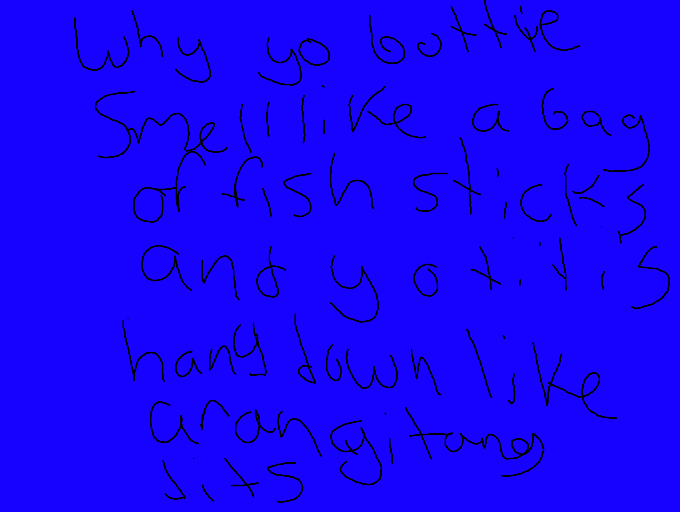 Why yo bottie
Smell like a bag
of fish sticks
and yo titis
hang down like
arangitang
tits